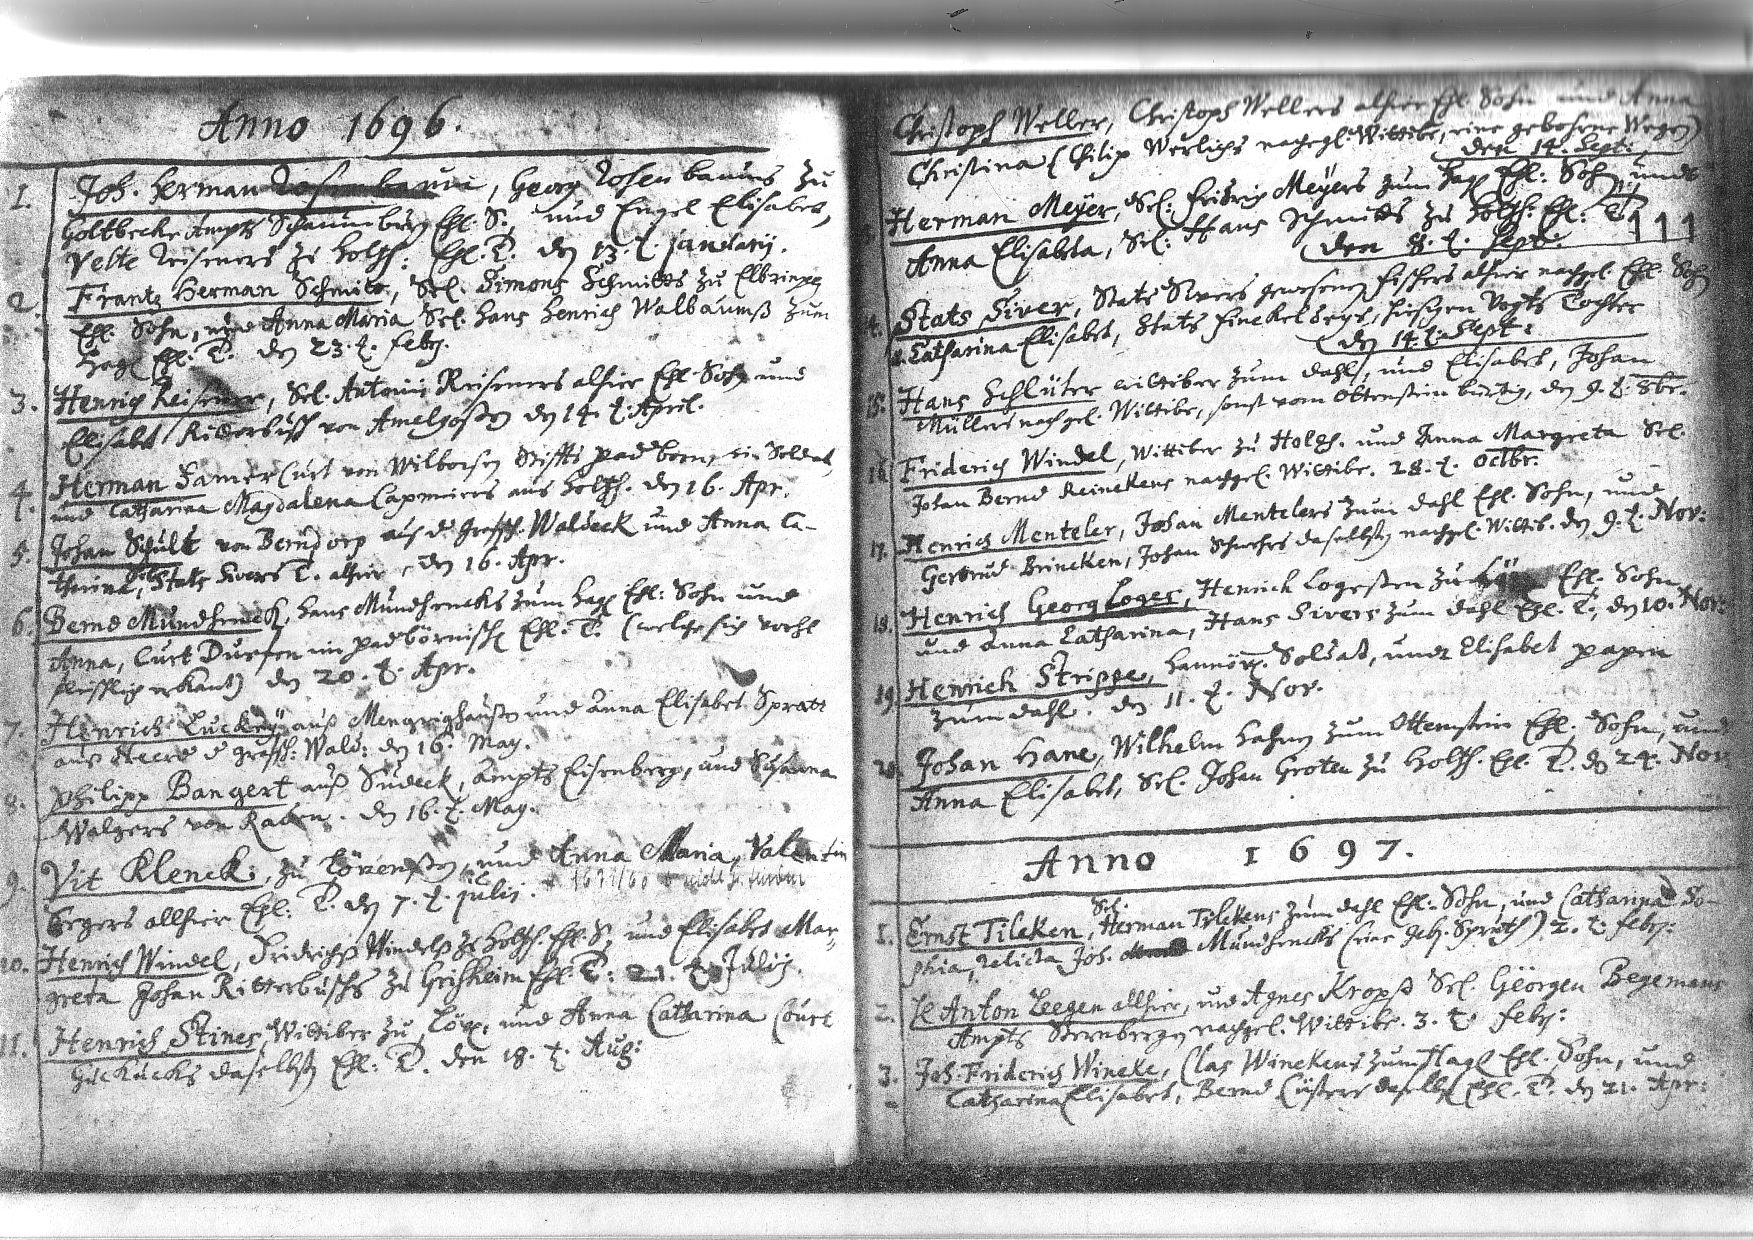 Anno 1696.
1. Joh. Herman Rosenbaum, Georg Rosenbaums zu
Goltbecke Ampts Schaumburg Ehl. S., und Engel Elisabet,
Velte Reiseners zu Holtzh: Ehl. T. den 13. t. Januarij.
2. Frantz Herman Schmits, Sel. Simons Schmitts zu Elbrinxen
Ehl. Sohn, und Anna Maria Sel. Hans Henrich Walbaumß zum
Hagen Ehl. T. den 23. t. febr.
3. Henrich Reisener, Sel. Antonii Reiseners alhier Ehl Sohn und
Elisabet Ritterbusch von Amelgosen den 14. t. April.
4. Herman Samer Curt von Wilbosen Stiffts padborn, ein Soldat,
und Catharina Magdalena Capmeiers aus Holtzh. den 16. Apr.
5. Johan Schult von Berndorp aus d. Graffsch. Waldeck und Anna Ca-
tharina, Stats Sivers T. alhier, den 16. Apr.
6. Bernd Mundhenck, Hans Mundhencks zum Hagen Ehl: Sohn und
Anna, Curt Dursen im padbörnisch Ehl. T. (welche sich vorhl
fleischlich erkant) den 20. t. Apr.
7. Henrich Luckey auß Mengringhausen und Anna Elisabet Spratt
aus d graffsch: Wald: den 16. May.
8. Philipp Bangert auß Sudeck, Ampts Eisenberg, und Susanna
Walgers von Raden. den 16. t. May.
9. Vit Klenck:, zu Lövensen, und Anna Maria, Valentin
Segers allhier Ehl: T. den 7. t. Julij.
10. Henrich Windel, Fridrichß Windelß zu Holtzh. Ehl. S. und Elisabet Mar-
greta Johan Ritterbuschs zu Grisheim Ehl. T: 21. t. Julij.
11. Henrich Stines, Wittiber zu Löw, und Anna Catharina Court
Guckucks daselbst Ehl: T. den 18. t. Aug:
Christoph Weller, Christoph Wellers alhier Ehl. Sohn und Anna
Christina (Philip Werlichs nachgel. Wittibe, eine gebohrene Wegen)
den 14. Sept:
Herman Meyer, Sel: Fridrig Meyers zum Hagen Ehl: Sohn, undt
Anna Elisabeta, Sel: Hans Schmitts zu Holtzh. Ehl: T.
111
den 8. t. Sept:
14. Stats Siver, Stats Sivers gewesenen fischers alhier nachgel. Ehl. Sohn
u. Catharina Elisabet, Stats Finckeldeys, hiesigen Vogts Tochter
den 14. t. Sept:
15. Hans Schlüter wittiber zum dahl, und Elisabet, Johan
Müllers nachgel. Wittibe, sonst vom Ottenstein bürtig, den 9. t. 8br.
16. Friderich Windel, Wittiber zu Holtzh. und Anna Margreta Sel.
Johan Bernd Reinekens nachgel. Wittibe. 28. t. Octbr.
17. Henrich Menteler, Johan Mentelers zum dahl Ehl. Sohn, und
Gertrud Brineken, Johan daselbsten nachgel. Wittib. den 9. t. Nov:
18. Henrich Georg Loges, Henrich Logesten zu Ehl. Sohn
und Anna Catharina, Hans Sivers zum dahl Ehl. T. den 10. Nov:
19. Henrich Strippe, Hannöv. Soldat, undt Elisabet papen
zum dahl. den 11. t. Nov.
20. Johan Hane, Wilhelm Hahnen zum Ottenstein Ehl. Sohn, und
Anna Elisabet, Sel. Johan Groten zu Holtzh. Ehl. T. den 24. Nov.
Anno 1697.
1. Ernst Tileken, Sel. Herman Tilekens zum dahl Ehl. Sohn, und Catharina So-
phia, relicta Joh. Mundhencks (eine geb. Spruth) 2. t. febr:
2. Anton Zeegen allhier, und Agnes Kropß Sel. Geörgen Begemans
Ampts Sternbergen nachgel. Wittibe. 3. t. febr:
3. Joh. Friderich Wineke, Clas Winekens zum Hagl Ehl. Sohn, und
Catharina Elisabet, Bernd Cüsters daselbst Ehl. T. den 21. Apr: